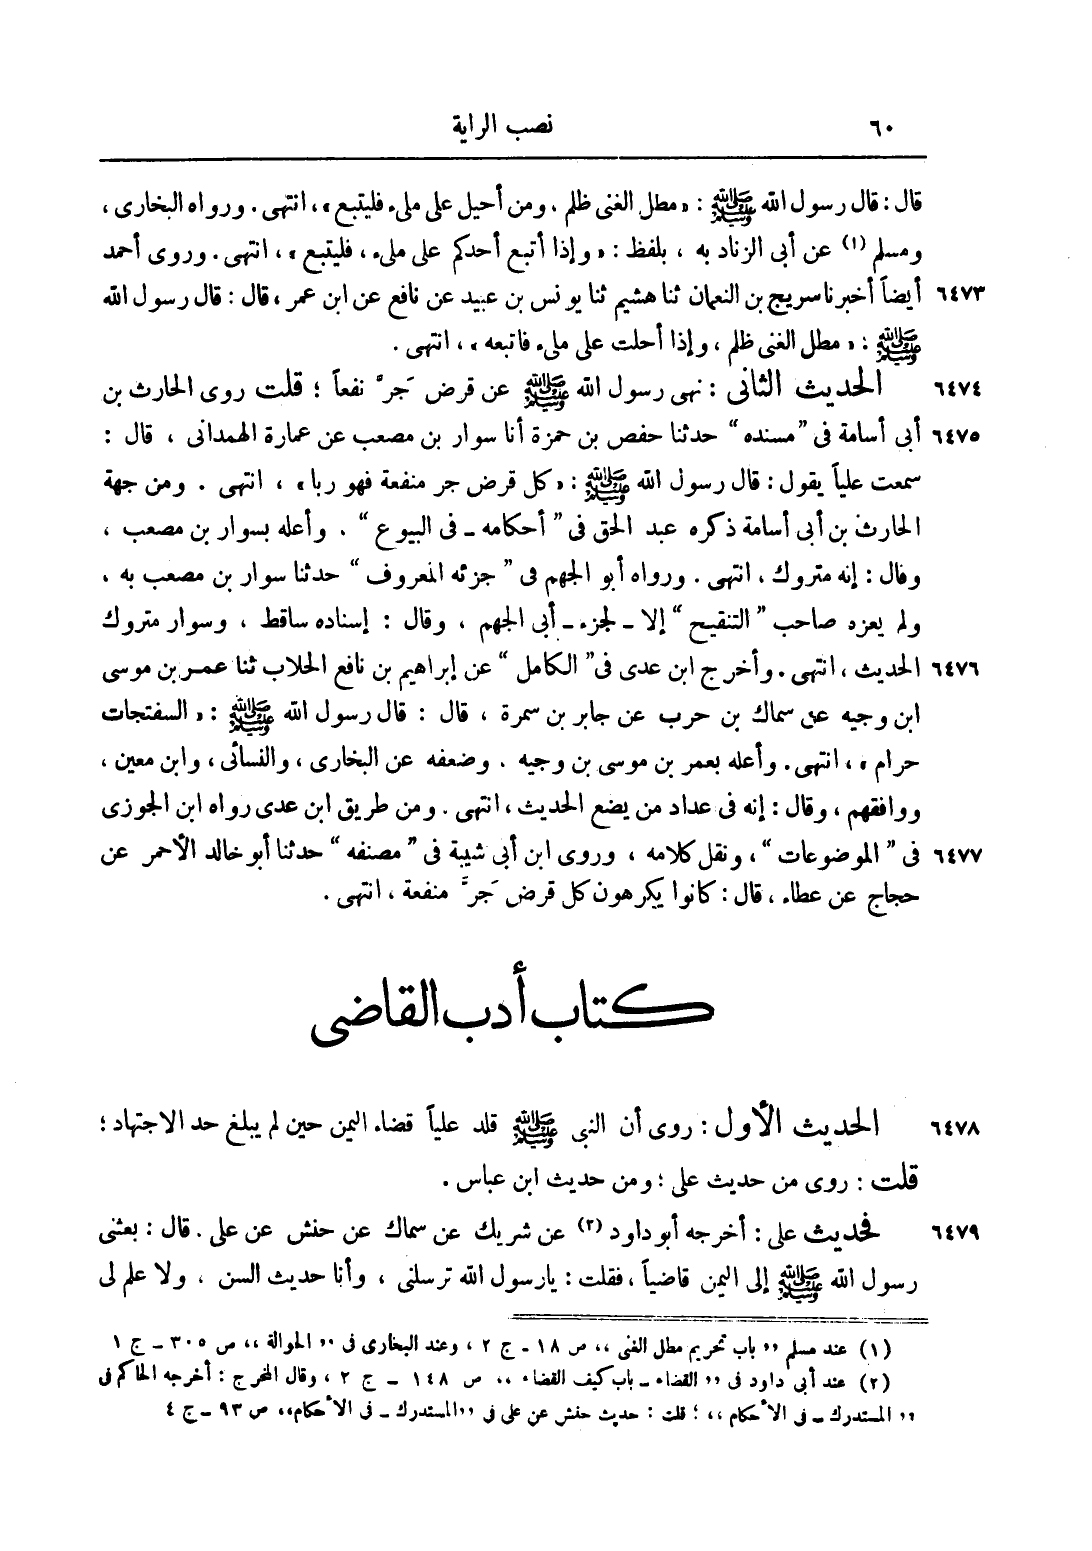 ٦٠ نصب الراية
قال: قال رسول الله ﷺ: «مطل الغنى ظلم، ومن أحيل على ملىء فليتبع»، انتهى. ورواه البخارى،
ومسلم (١) عن أبى الزناد به، بلفظ: «وإذا أتبع أحدكم على ملىء، فليتبع»، انتهى. وروى أحمد
٦٤٧٣ أيضاً أخبرنا سريج بن النعمان ثنا هشيم ثنا يونس بن عبيد عن نافع عن ابن عمر، قال: قال رسول الله
ﷺ: «مطل الغنى ظلم، وإذا أحلت على ملىء فاتبعه»، انتهى.
٦٤٧٤ الحديث الثانى: نهى رسول الله ﷺ عن قرض جَرَّ نفعاً؛ قلت روى الحارث بن
٦٤٧٥ أبى أسامة فى "مسنده" حدثنا حفص بن حمزة أنا سوار بن مصعب عن عمارة الهمدانى، قال:
سمعت علياً يقول: قال رسول الله ﷺ: «كل قرض جر منفعة فهو ربا»، انتهى. ومن جهة
الحارث بن أبى أسامة ذكره عبد الحق فى "أحكامه ـ فى البيوع". وأعله بسوار بن مصعب،
وقال: إنه متروك، انتهى. ورواه أبو الجهم فى "جزئه المعروف" حدثنا سوار بن مصعب به،
ولم يعزه صاحب "التنقيح" إلا ـ لجزء ـ أبى الجهم، وقال: إسناده ساقط، وسوار متروك
٦٤٧٦ الحديث، انتهى. وأخرج ابن عدى فى "الكامل" عن إبراهيم بن نافع الجلاب ثنا عمر بن موسى
ابن وجيه عن سماك بن حرب عن جابر بن سمرة، قال: قال رسول الله ﷺ: «السفتجات
حرام»، انتهى. وأعله بعمر بن موسى بن وجيه. وضعفه عن البخارى، والنسائى، وابن معين،
ووافقهم، وقال: إنه فى عداد من يضع الحديث، انتهى. ومن طريق ابن عدى رواه ابن الجوزى
٦٤٧٧ فى "الموضوعات"، ونقل كلامه، وروى ابن أبى شيبة فى "مصنفه" حدثنا أبو خالد الأحمر عن
حجاج عن عطاء، قال: كانوا يكرهون كل قرض جَرَّ منفعة، انتهى.
كتاب أدب القاضى
٦٤٧٨ الحديث الأول: روى أن النبى ﷺ قلد علياً قضاء اليمن حين لم يبلغ حد الاجتهاد؛
قلت: روى من حديث على؛ ومن حديث ابن عباس.
٦٤٧٩ فحديث على: أخرجه أبو داود (٢) عن شريك عن سماك عن حنش عن على. قال: بعثنى
رسول الله ﷺ إلى اليمن قاضياً، فقلت: يارسول الله ترسلنى، وأنا حديث السن، ولا علم لى
(١) عند مسلم ,, باب تحريم مطل الغنى ،، ص ١٨ ـ ج ٢، وعند البخارى فى ,, الحوالة ،، ص ٣٠٥ ـ ج ١
(٢) عند أبى داود فى ,, القضاء ـ باب كيف القضاء ،، ص ١٤٨ ـ ج ٢، وقال المخرج: أخرجه الحاكم فى
,, المستدرك ـ فى الأحكام ،،؛ قلت: حديث حنش عن على فى ,, المستدرك ـ فى الأحكام،، ص ٩٣ ـ ج ٤